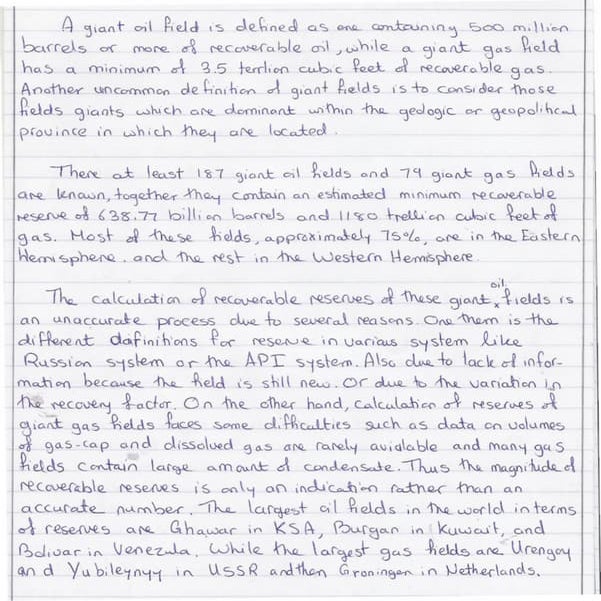 A giant oil field is defined as one containing 500 million
barrels or more of recoverable oil, while a giant gas field
has a minimum of 3.5 terrlion cubic feet of recoverable gas.
Another uncommon definition of giant fields is to consider those
fields giants which are dominant within the geologic or geopolitical
province in which they are located.
There at least 187 giant oil fields and 79 giant gas fields
are known, together they contain an estimated minimum recoverable
reserve of 638.77 billion barrels and 1180 trellion cubic feet of
gas. Most of these fields, approximately 75%, are in the Eastern
Hemisphere. and the rest in the Western Hemisphere.
The calculation of recoverable reserves of these giant oil fields is
an unaccurate process due to several reasons. One them is the
different dafinitions for reserve in various system like
Russian system or the API system. Also due to lack of infor-
mation because the field is still new. Or due to the variation in
the recovery factor. On the other hand, calculation of reserves of
giant gas fields faces some difficulties such as data on volumes
of gas-cap and dissolved gas are rarely avialable and many gas
fields contain large amount of condensate. Thus the magnitude of
recoverable reserves is only an indication rather than an
accurate number. The largest oil fields in the world in terms
of reserves are Ghawar in KSA, Burgan in Kuwait, and
Bolivar in Venezula. While the largest gas fields are Urengoy
and Yubileynyy in USSR and then Groningen in Netherlands.